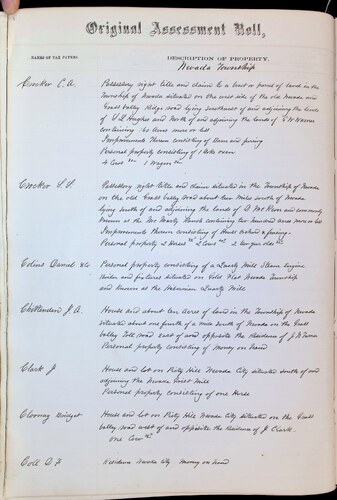 Original Assessment Roll,
NAMES OF TAX PAYERS.
DESCRIPTION OF PROPERTY.
Nevada Township
Crocker C. A. Possessory right title and claim to a tract or parcel of land in the
Township of Nevada situated on the west side of the old Nevada and
Grass Valley Ridge road lying southwest of and adjoining the lands
of Hughes and North of and adjoining the lands of Warren
containing 160 acres more or less
Improvements thereon consisting of House and fencing
Personal property consisting of
4 1 Wagon
Crocker Possessory right title and claim situated in the Township of Nevada
on the old Grass Valley road about two miles south of Nevada
lying south of and adjoining the lands of and commonly
known as the Ranch containing two hundred acres more or less
Improvements thereon consisting of House orchard & fencing.
Personal property 2 Horses 2 Cows 2 two year olds
Colins Daniel &Co Personal property consisting of a Quartz Mill Steam Engine
Boiler and fixtures situated on Gold Flat Nevada Township
and known at the Hibernian Quartz Mill
Chittenden J. A. House and about ten acres of land in the Township of Nevada
situated about one fourth of a mile south of Nevada on the Grass
Valley Toll road east of and opposite the residence of
Personal property consisting of money on hand
Clark J House and lot on Piety Hill Nevada City situated south of and
adjoining the Nevada Mill
Personal property consisting of one Horse
Clooney Bridget House and lot on Piety Hill Nevada City situated on the Grass
Valley road west of and opposite the residence of J. Clark.
one Cow
Coll D. F. Residence Nevada City money on hand